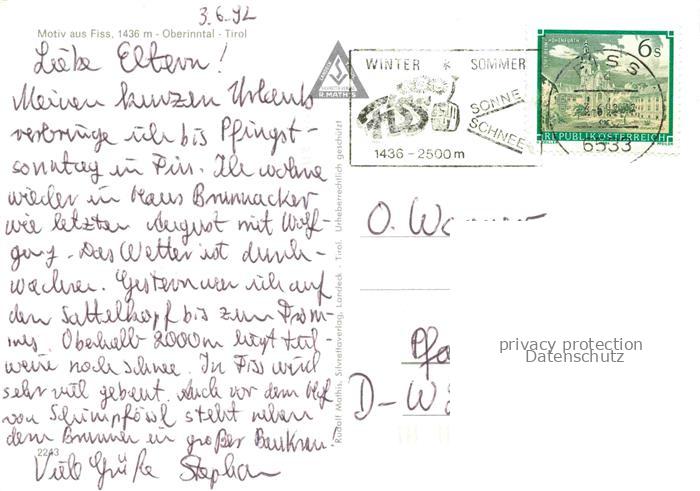 3.6.92
Motiv aus Fiss, 1436 m - Oberinntal - Tirol
Liebe Eltern!
Meinen kurzen Urlaub
verbringe ich bis Pfingst-
sonntag in Fiss. Ich wohne
wieder in Haus Brunnacker
wie letzten August mit Wolf-
gang. Das Wetter ist durch-
wachsen. Gestern war ich auf
dem Sattelkopf bis zum
Oberhalb 2000m liegt teil-
weise noch Schnee. In Fiss wird
sehr viel gebaut. Auch vor dem Hof
von steht neben
dem Brunnen ein großer Baukran!
2243
Viele Grüße Stephan
R. MATHIS
Rudolf Mathis, Silvrettaverlag, Landeck - Tirol. Urheberrechtlich geschützt
WINTER * SOMMER
FISS
SONNE
SCHNEE
1436 - 2500 m
6 S
REPUBLIK ÖSTERREICH
6533
O. W
Pfa
D-W
privacy protection
Datenschutz